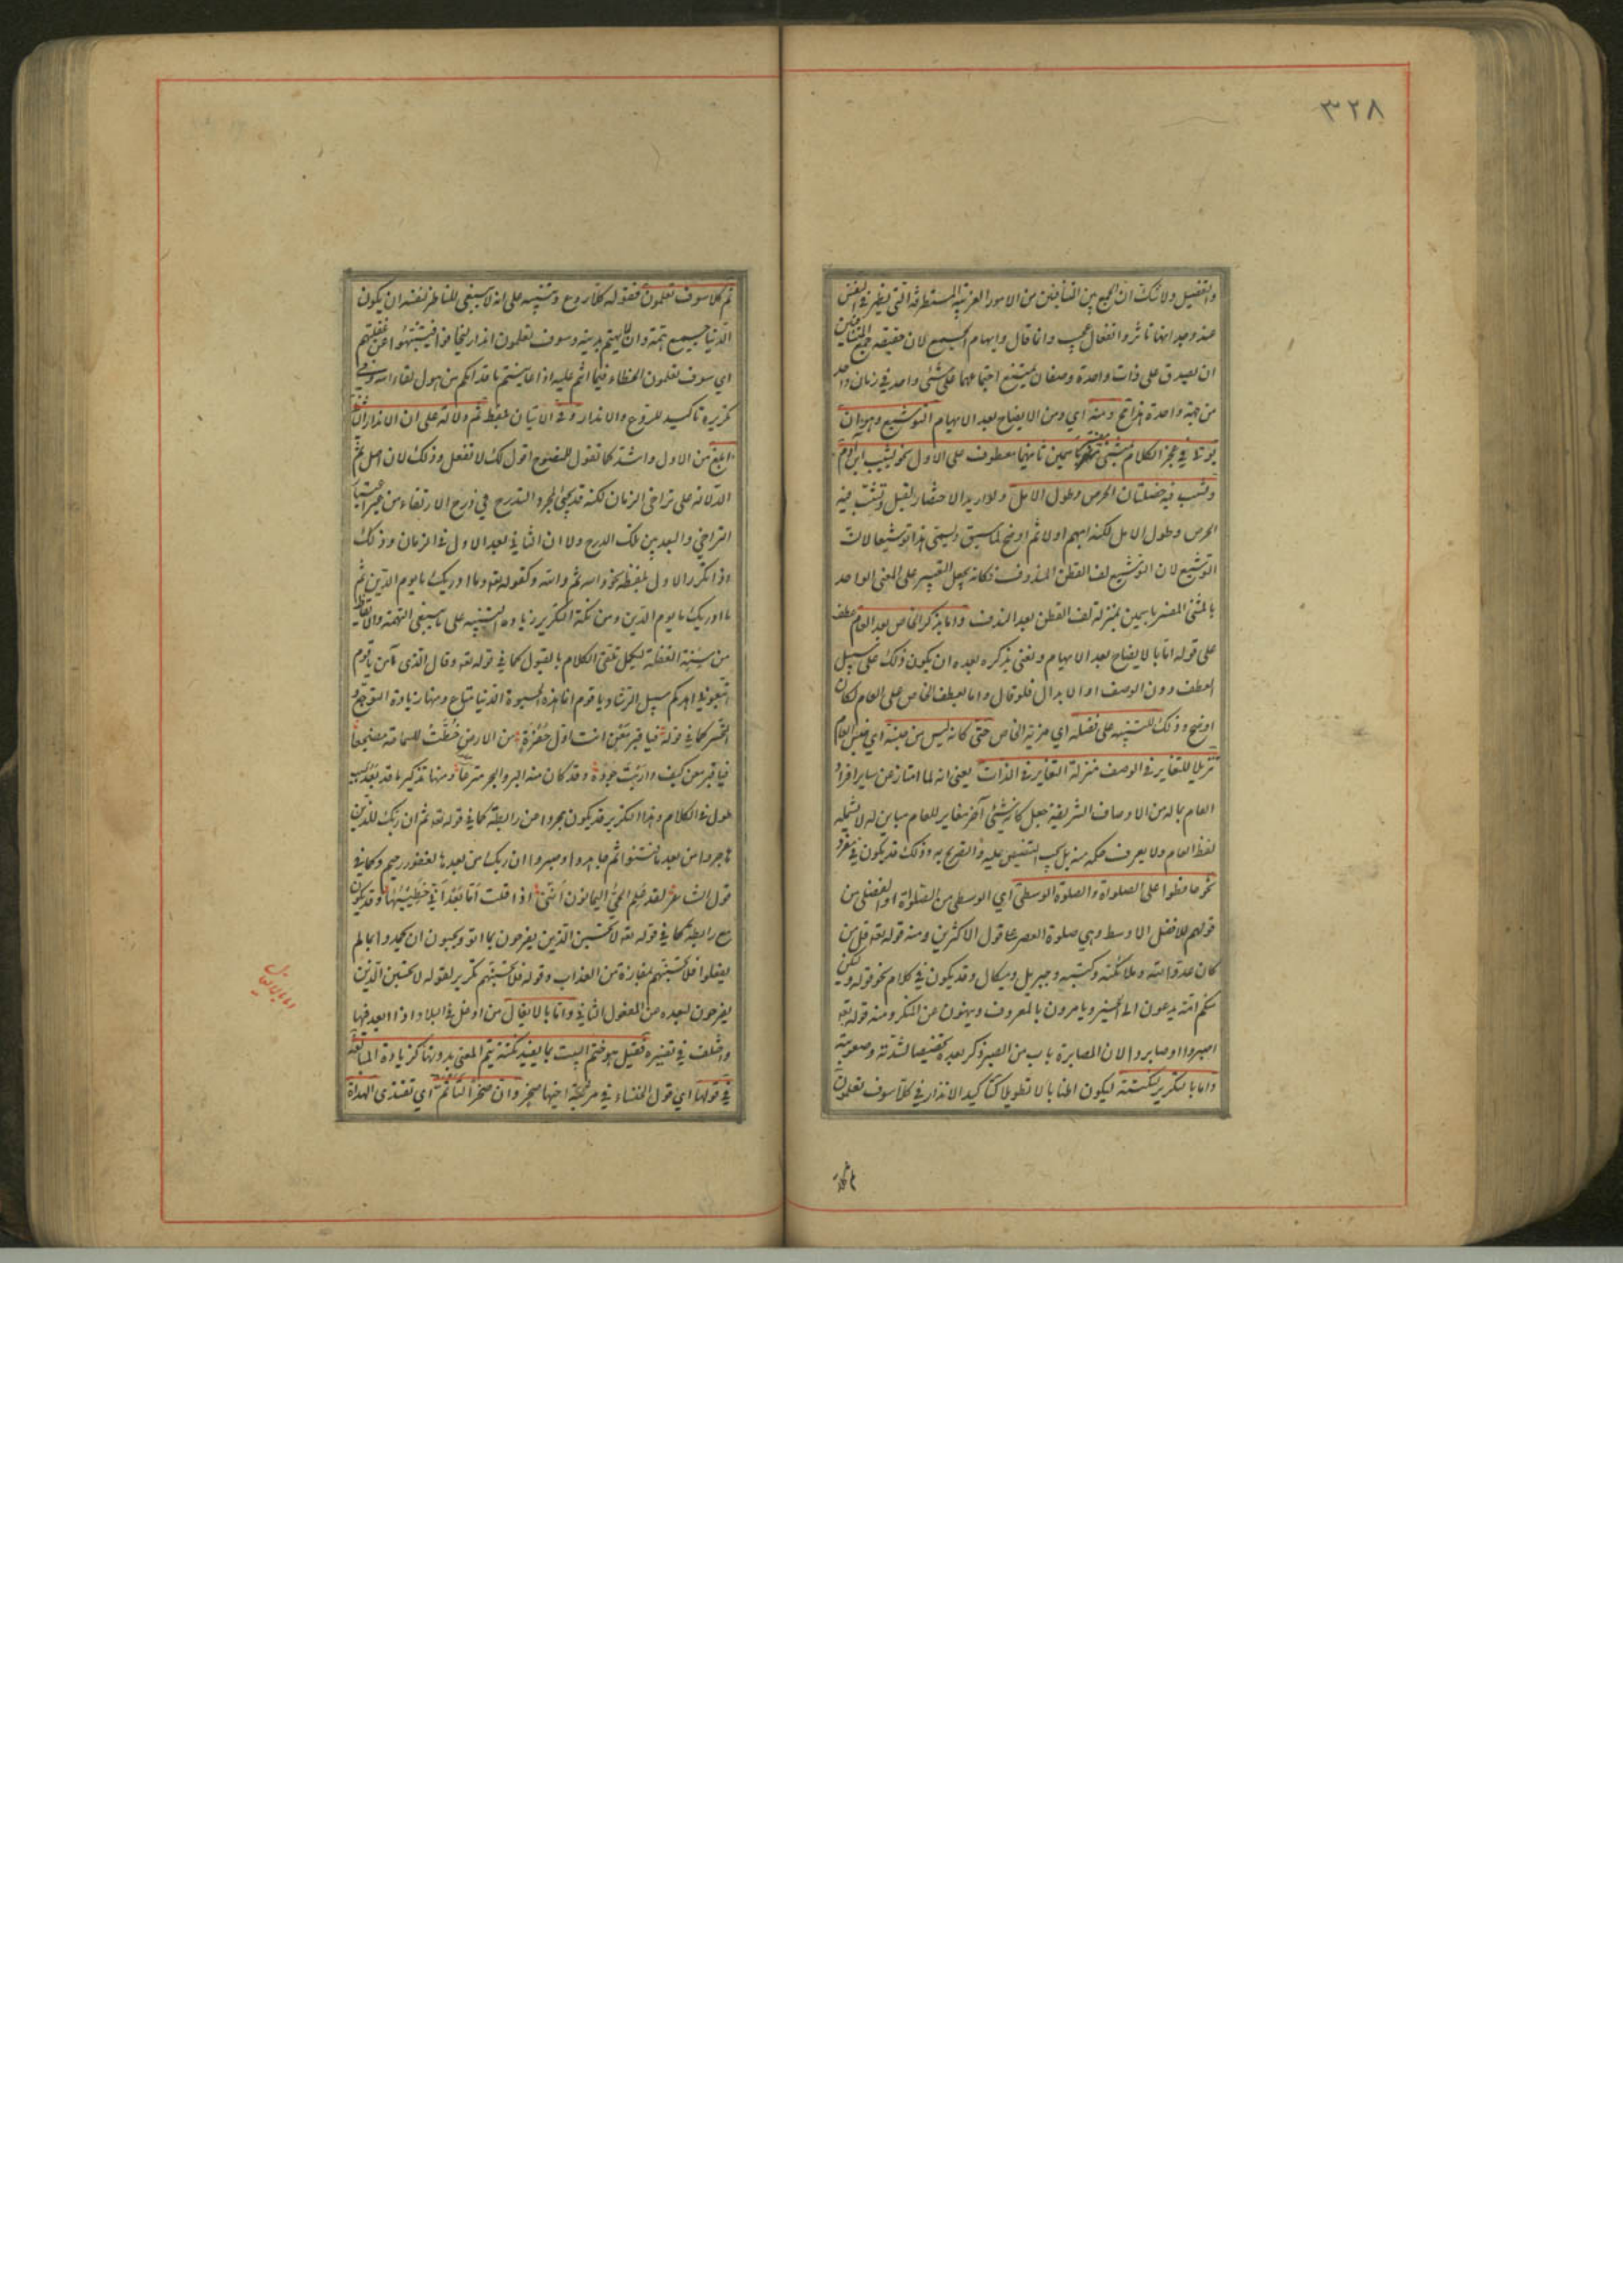 ٣٢٨
والتفصيل ولا شك ان الجمع بين المتنافيين من الامور الغريبة المستطرفة التي يظهر في النفس
عند وجدانها تاثر وانفعال عجيب وانما قال وايهام الجمع لان حقيقة جمع المتنافيين
ان يصدق على ذات واحدة وصفان يمتنع اجتماعهما على شئ واحد في زمان واحد
من جهة واحدة هذا مح ومنه اي ومن الايضاح بعد الابهام التوشيع وهو ان
يؤتى في عجز الكلام بمثنى مفسر باسمين ثانيهما معطوف على الاول نحو يشيب ابن آدم
ويشب فيه خصلتان الحرص وطول الامل ولو اريد الاختصار لقيل وتشب فيه
الحرص وطول الامل لكنه ابهم اولا ثم اوضح لما سبق ويسمى هذا توشيعا لان
التوشيع لان التوشيع لف القطن المندوف فكانه يجعل التعبير على المعنى الواحد
بالمثنى المفسر باسمين بمنزلة لف القطن بعد الندف واما بذكر الخاص بعد العام عطف
على قوله اما بالايضاح بعد الابهام ونعني بذكره بعده ان يكون ذلك على سبيل
العطف دون الوصف او الابدال فلو قال واما بعطف الخاص على العام لكان
اوضح وذلك للتنبيه على فضله اي مزية الخاص حتى كانه ليس من جنسه اي جنس العام
تنزيلا للتغاير في الوصف منزلة التغاير في الذات يعني انه لما امتاز عن ساير افراد
العام بما له من الاوصاف الشريفة جعل كانه شئ آخر مغاير للعام مباين له لا يشمله
لفظ العام ولا يعرف حكمه منه بل يجب التنصيص عليه والتصريح به وذلك قد يكون في مفرد
نحو حافظوا على الصلواة والصلوة الوسطى اي الوسطى من الصلواة او الفضلى من
قولهم للافضل الاوسط وهي صلوة العصر على قول الاكثرين ومنه قوله تعه قل من
كان عدوا لله وملائكته وكتبه وجبريل وميكال وقد يكون في كلام نحو قوله ولتكن
منكم امة يدعون الى الخير ويامرون بالمعروف وينهون عن المنكر ومنه قوله تعه
اصبروا وصابروا لان المصابرة باب من الصبر ذكر بعده تخصيصا لشدته وصعوبته
واما بالتكرير لنكتة ليكون اطنابا لا تطويلا كتاكيد الانذار في كلا سوف تعلمون
ثم كلا
ثم كلا سوف تعلمون فقوله كلا ردع وتنبيه على انه لا ينبغي للناظر لنفسه ان يكون
الدنيا جميع همته وان لا يهتم بدينه وسوف تعلمون انذار ليخافوا فينتبهوا عن غفلتهم
اي سوف تعلمون الخطاء فيما انتم عليه اذا عاينتم ما قدامكم من هول لقاء الله وفي
تكريره تاكيد للردع والانذار وفي الاتيان بلفظ ثم دلالة على ان الانذار الثاني
ابلغ من الاول واشد كما تقول للمنصوح اقول لك لا تفعل وذلك لان اصل ثم
الدلالة على تراخي الزمان لكنه قد يجئ لمجرد التدرج في درج الارتقاء من غير اعتبار
التراخي والبعد بين تلك الدرج ولا ان الثاني بعد الاول في الزمان وذلك
اذا تكرر الاول بلفظه نحو والله ثم والله وكقوله تعه وما ادريك ما يوم الدين ثم
ما ادريك ما يوم الدين ومن نكتة التكرير زيادة التنبيه على ما ينبغي التهمة والايقاظ
من سنة الغفلة ليكمل تلقي الكلام بالقبول كما في قوله تعه وقال الذي آمن يا قوم
اتبعوني اهدكم سبيل الرشاد يا قوم انما هذه الحيوة الدنيا متاع ومنها زيادة التوجع و
التحسر كما في قوله فيا قبر معن انت اول حفرة من الارض خطت للسماحة مضجعا
فيا قبر معن كيف واريت جوده وقد كان منه البر والبحر مترعا ومنها تذكير ما قد بعد بسبب
طول في الكلام وهذا التكرير قد يكون مجردا عن رابطة كما في قوله تعه ثم ان ربك للذين
هاجروا من بعد ما فتنوا ثم جاهدوا وصبروا ان ربك من بعدها لغفور رحيم وكما في
قول الشاعر لقد علم الحي اليمانون انني اذا قلت اما بعد اني خطيبها وقد يكون
مع رابطة كما في قوله تعه لا تحسبن الذين يفرحون بما اتوا ويحبون ان يحمدوا بما لم
يفعلوا فلا تحسبنهم بمفازة من العذاب وقوله فلا تحسبنهم تكرير لقوله لا تحسبن الذين
يفرحون لبعده من المفعول الثاني واما بالايغال من اوغل في البلاد اذا ابعد فيها
واختلف في تفسيره فقيل هو ختم البيت بما يفيد نكتة يتم المعنى بدونها كزيادة المبالغة
في قولها اي قول الخنساء في مرثية اخيها صخر وان صخرا لتأتم اي تقتدي الهداة
واما بالايغال